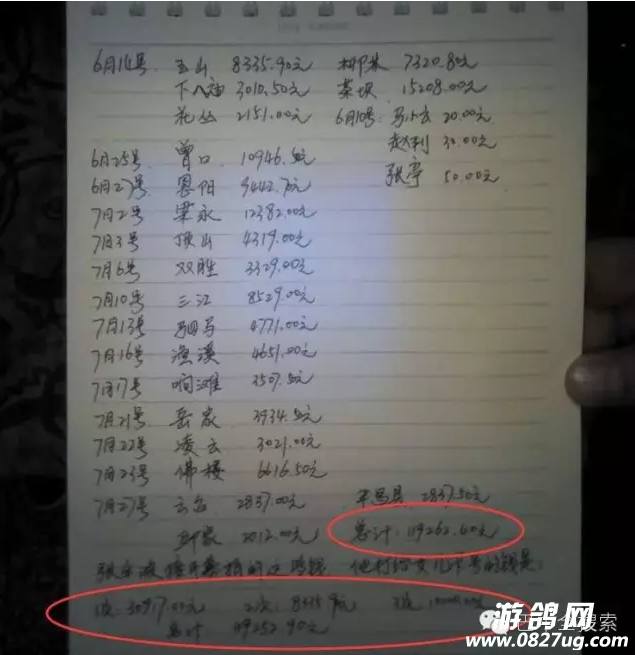 6月14号 玉山 8335.90元 柳林 7320.80元
下八庙 3010.50元 菜坝 15208.00元
花丛 2151.00元 6月10号: 20.00元
赵利 30.00元
6月25号 曾口 10946.5元 张亭 50.00元
6月27号 恩阳 9442.7元
7月2号 梁永 12382.00元
7月3号 顶山 4319.00元
7月6号 双胜 3329.00元
7月10号 三江 8529.00元
7月13号 驷马 4771.00元
7月16号 渔溪 4651.00元
7月17号 响滩 3507.5元
7月21号 岳家 3934.5元
7月22号 凌云 3021.00元
7月23号 佛楼 6616.50元
7月27号 云台 2837.00元 平昌县 2837.50元
2012.00元 总计: 119262.60元
他打给女儿卡号的钱是:
1次: 30917.00元 2次: 8335.9元 3次
总计
游鸽网
全搜索
www.0827ug.com